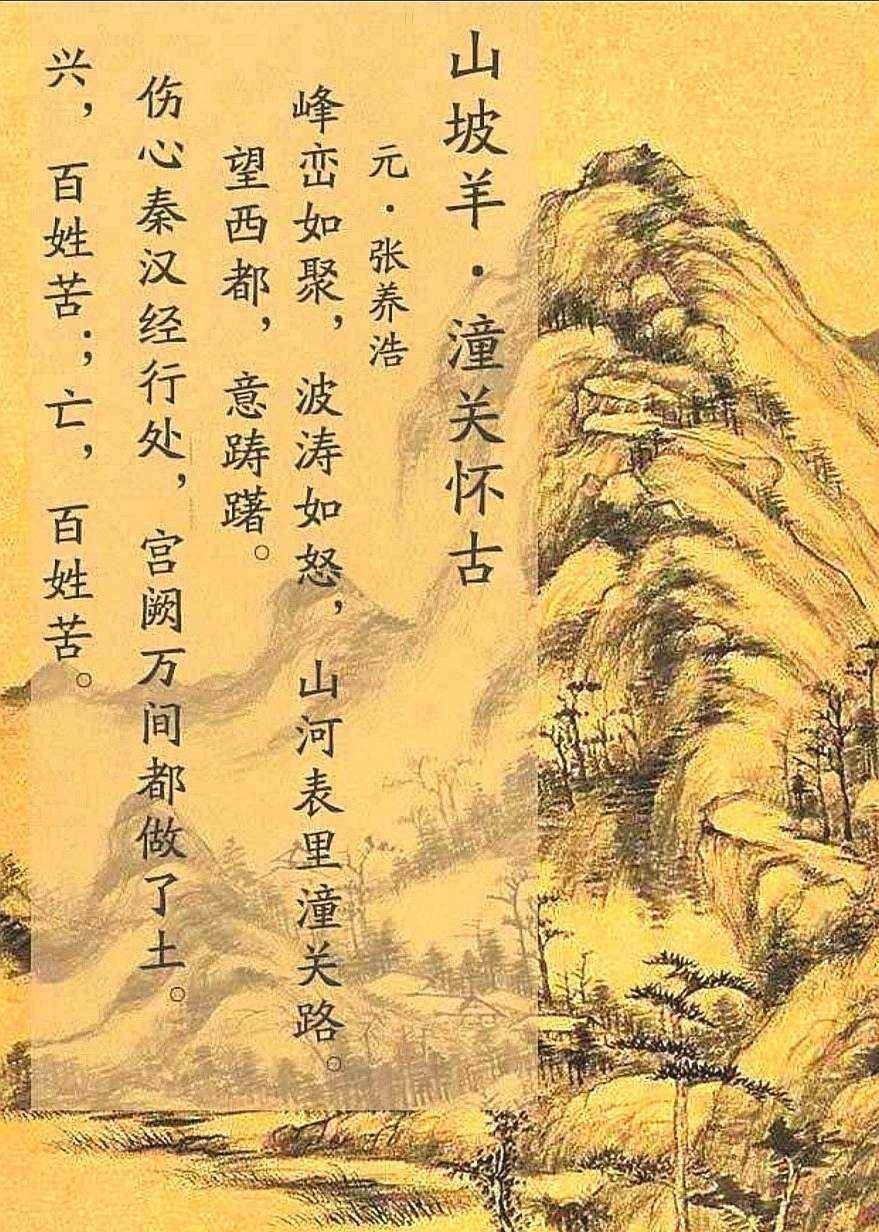 山坡羊·潼关怀古
元·张养浩
峰峦如聚，波涛如怒，山河表里潼关路。
望西都，意踌躇。
伤心秦汉经行处，宫阙万间都做了土。
兴，百姓苦；亡，百姓苦。